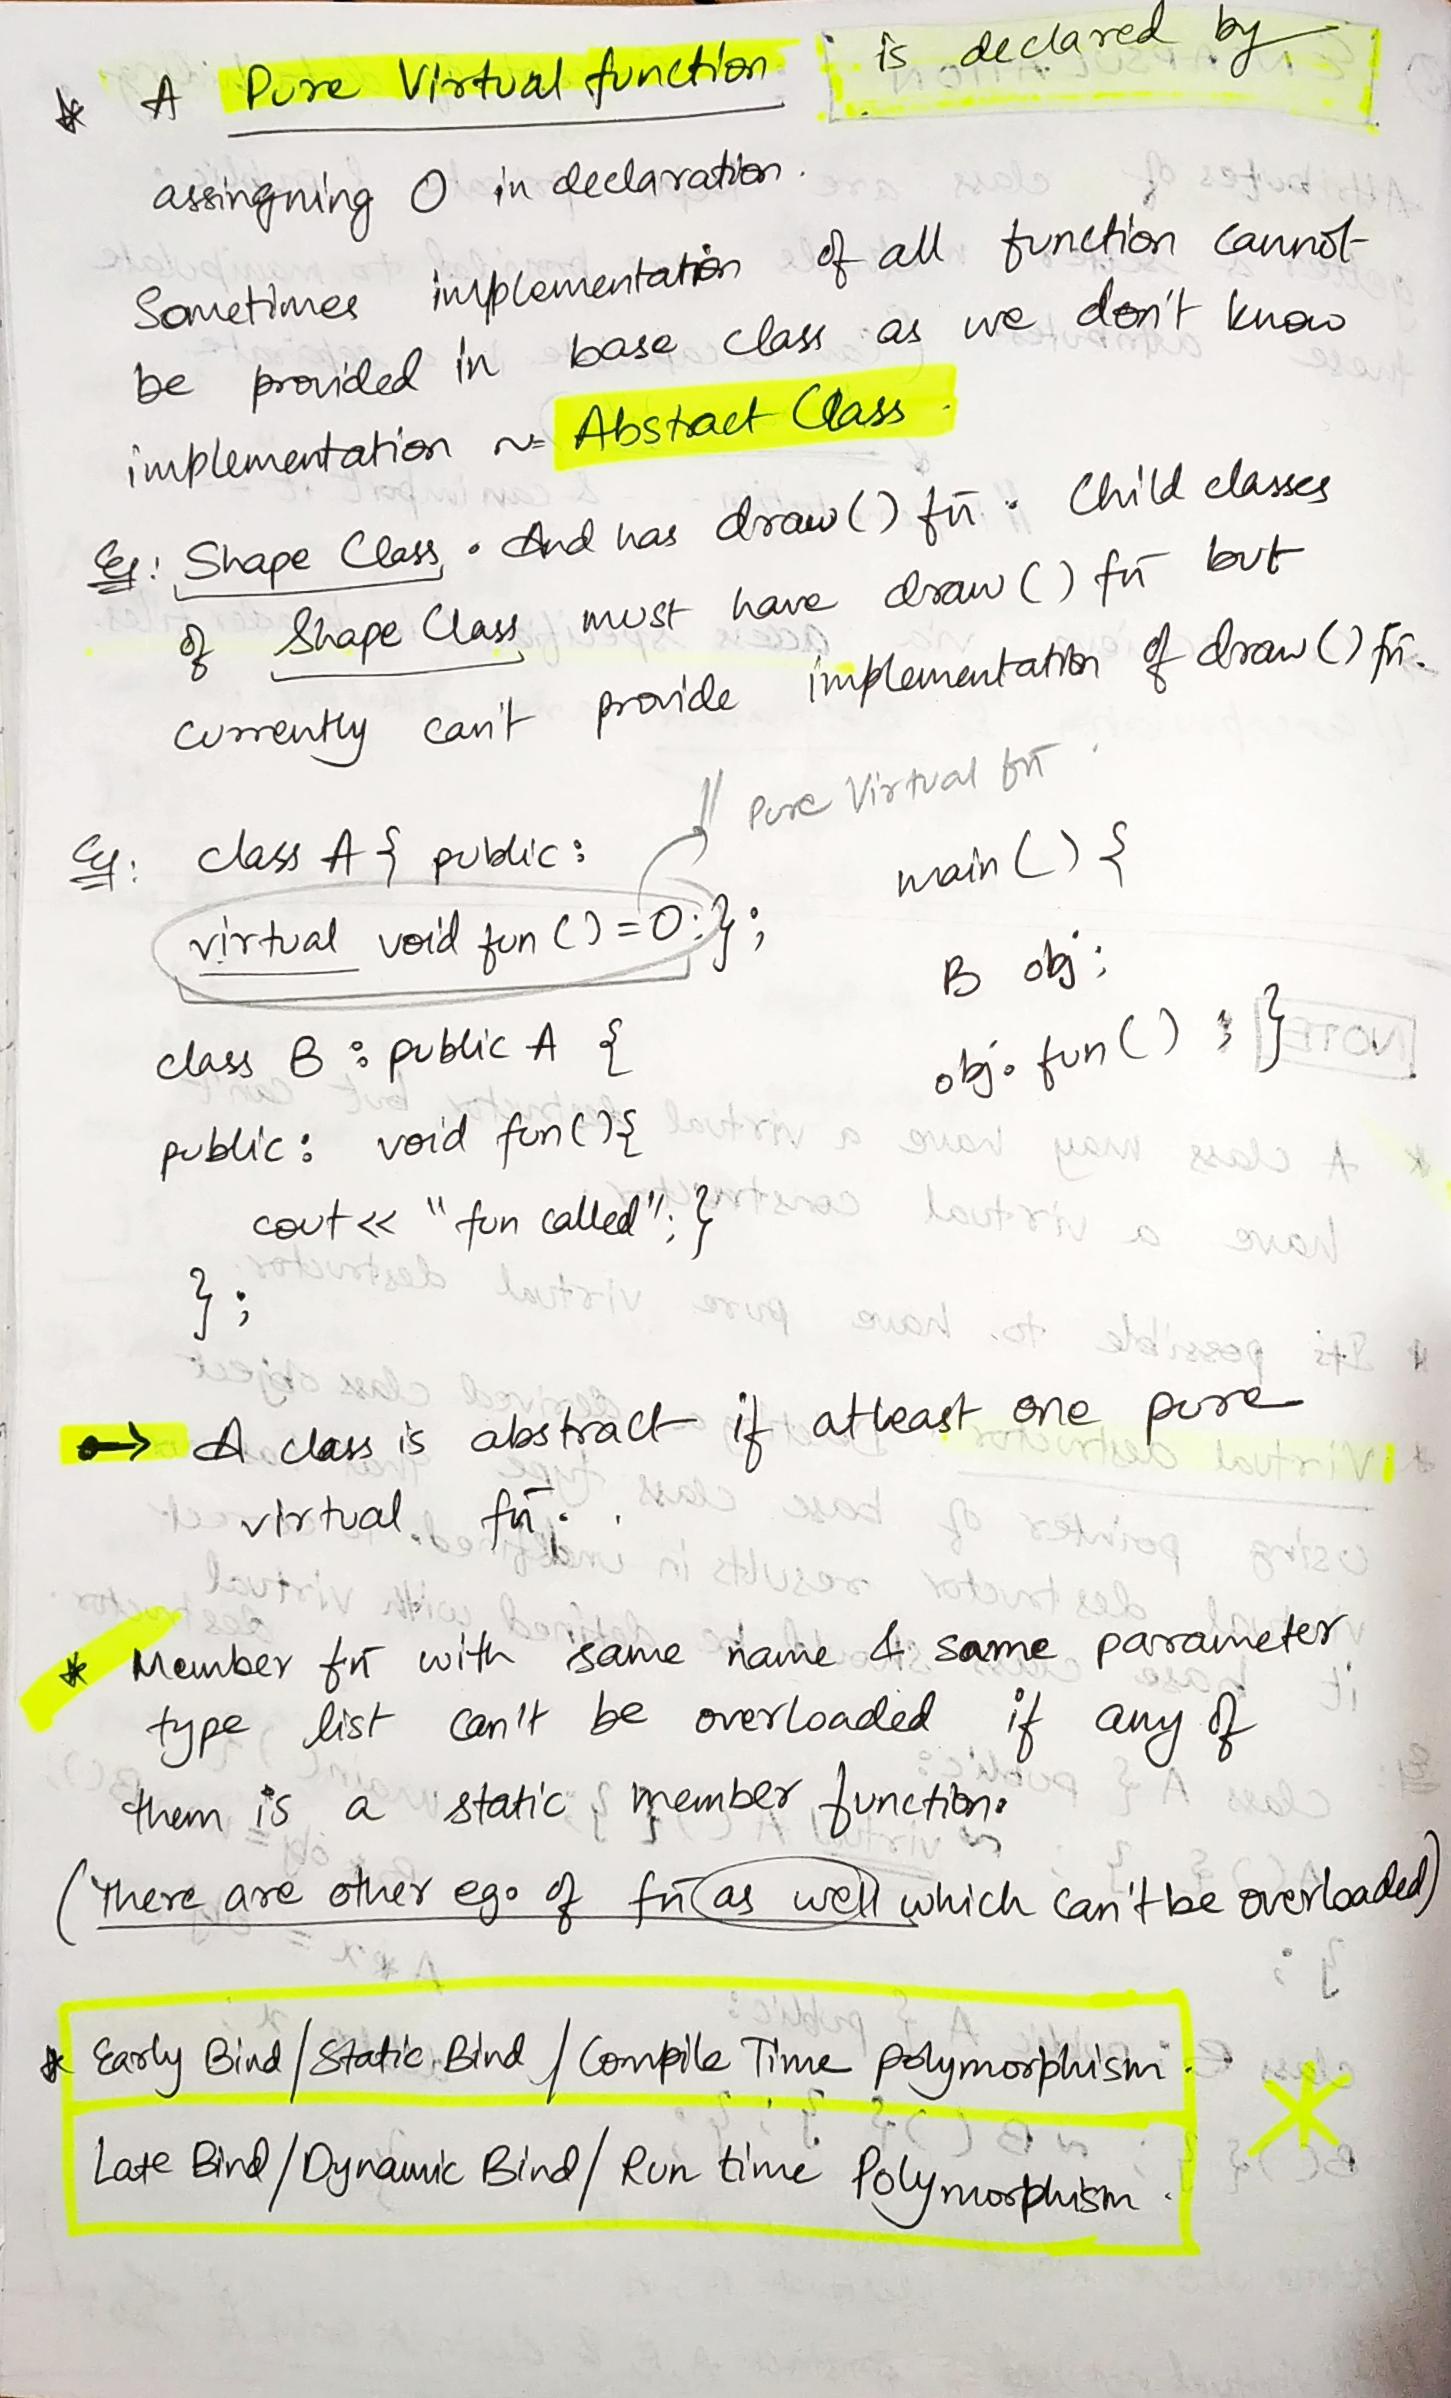 * A Pure Virtual function is declared by
assingning 0 in declaration.
Sometimes implementation of all function cannot
be provided in base class as we don't know
implementation ~= Abstract Class.
Eg: Shape Class. And has draw() fn̄. Child classes
of Shape Class must have draw() fn̄ but
currently can't provide implementation of draw() fn̄.
// Pure Virtual fn̄
Eg: class A { public:
virtual void fun() = 0; };
class B : public A {
public: void fun(){
cout << "fun called"; }
};
main() {
B obj;
obj. fun() ; }
→ A class is abstract if atleast one pure
virtual fn̄.
* Member fn̄ with same name & same parameter
type list can't be overloaded if any of
them is a static member function.
(There are other egs of fn̄ as well which can't be overloaded)
* Early Bind / Static Bind / Compile Time polymorphism.
Late Bind / Dynamic Bind / Run time Polymorphism.
*